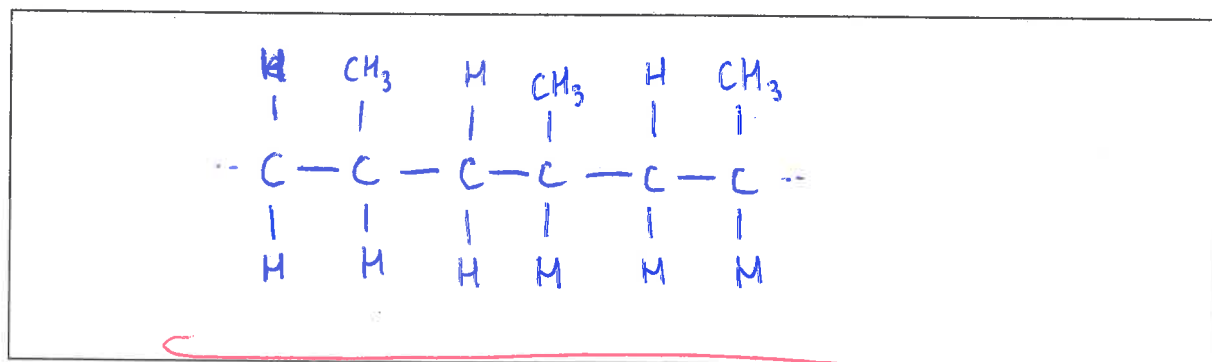 H CH₃ H CH₃ H CH₃
-- C — C — C — C — C — C --
H H H H H H